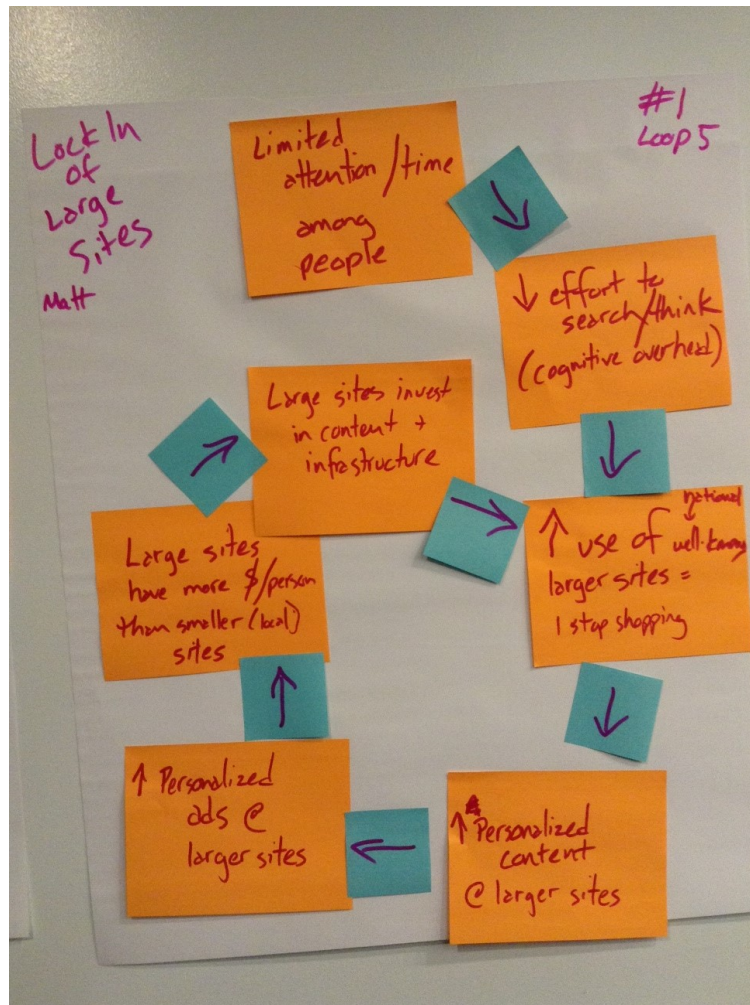 Lock In
of
Large
Sites
Matt
#1
Loop 5
Limited
attention/time
among
people
↓ effort to
search/think
(cognitive overhead)
national
↑ use of well-known
larger sites =
1 stop shopping
↑ Personalized
content
@ larger sites
↑ Personalized
ads @
larger sites
Large sites
have more $/person
than smaller (local)
sites
Large sites invest
in content +
infrastructure